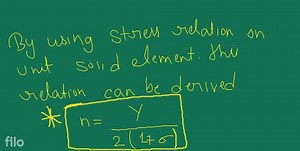 By using stress relation on
unit solid element. the
relation can be derived
* n = Y / 2(1+σ)
filo